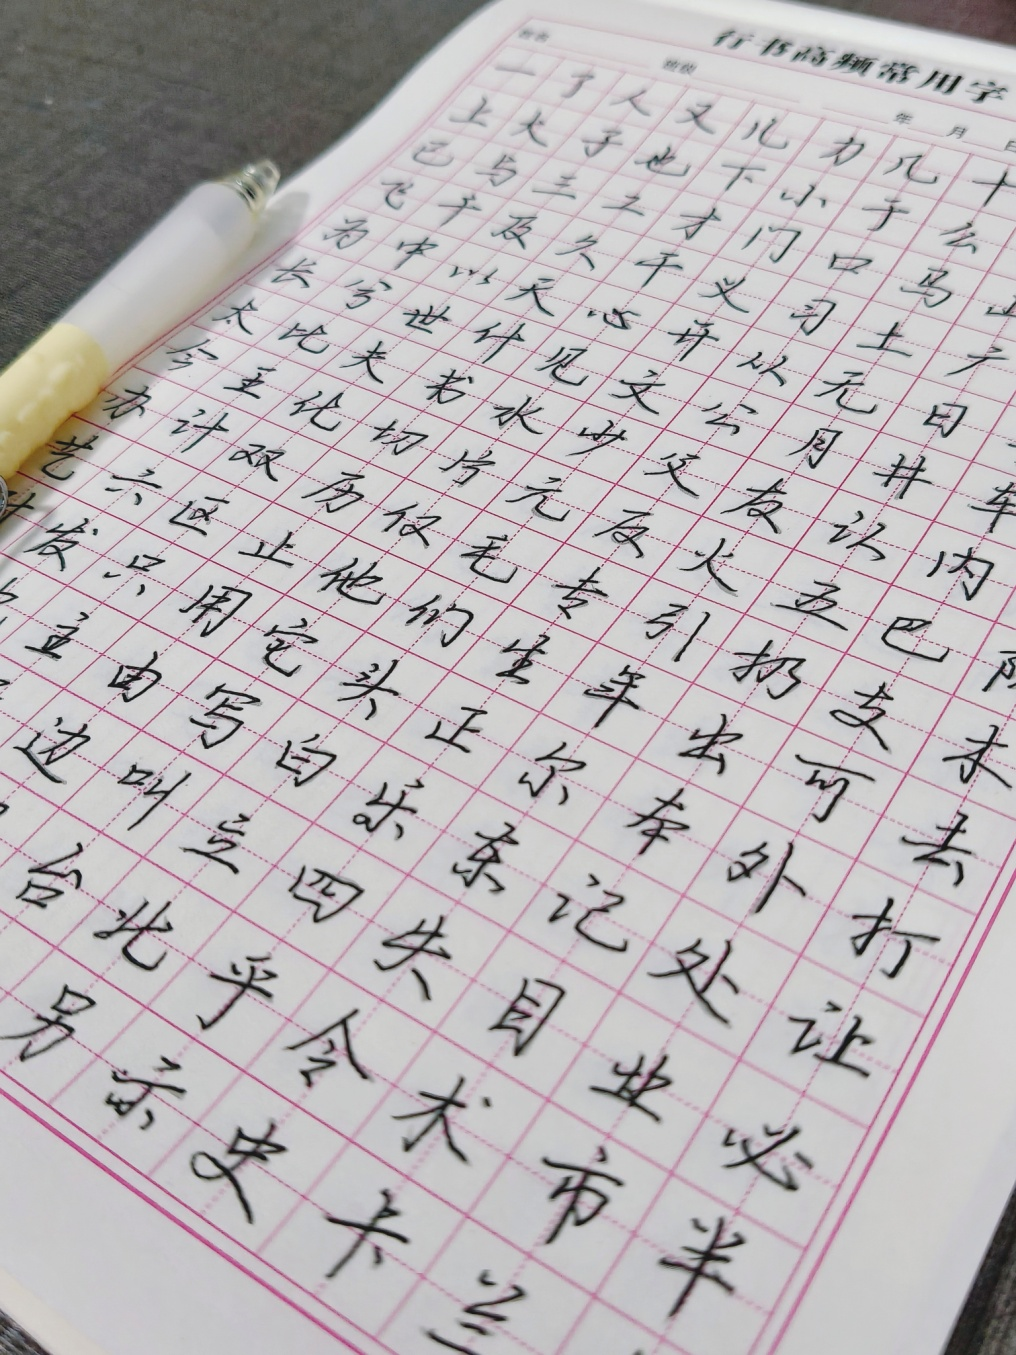 行书高频常用字
姓名 班级 年 月 日
一了人又儿力几十
上大子也下小于么
已与三工才门口马
飞千及久干义习土广
为中以天心开从无日
长分世什见文公月井车
太比夫书水少父友认内
今王化切片元反火五巴
办计双历仅毛专引扔支木
艺六区止他们生年出可去
发只用它头正尔本外打
主由写白乐东记处让
边叫立四失目业必
台北乎令术市半
另示史卡兰